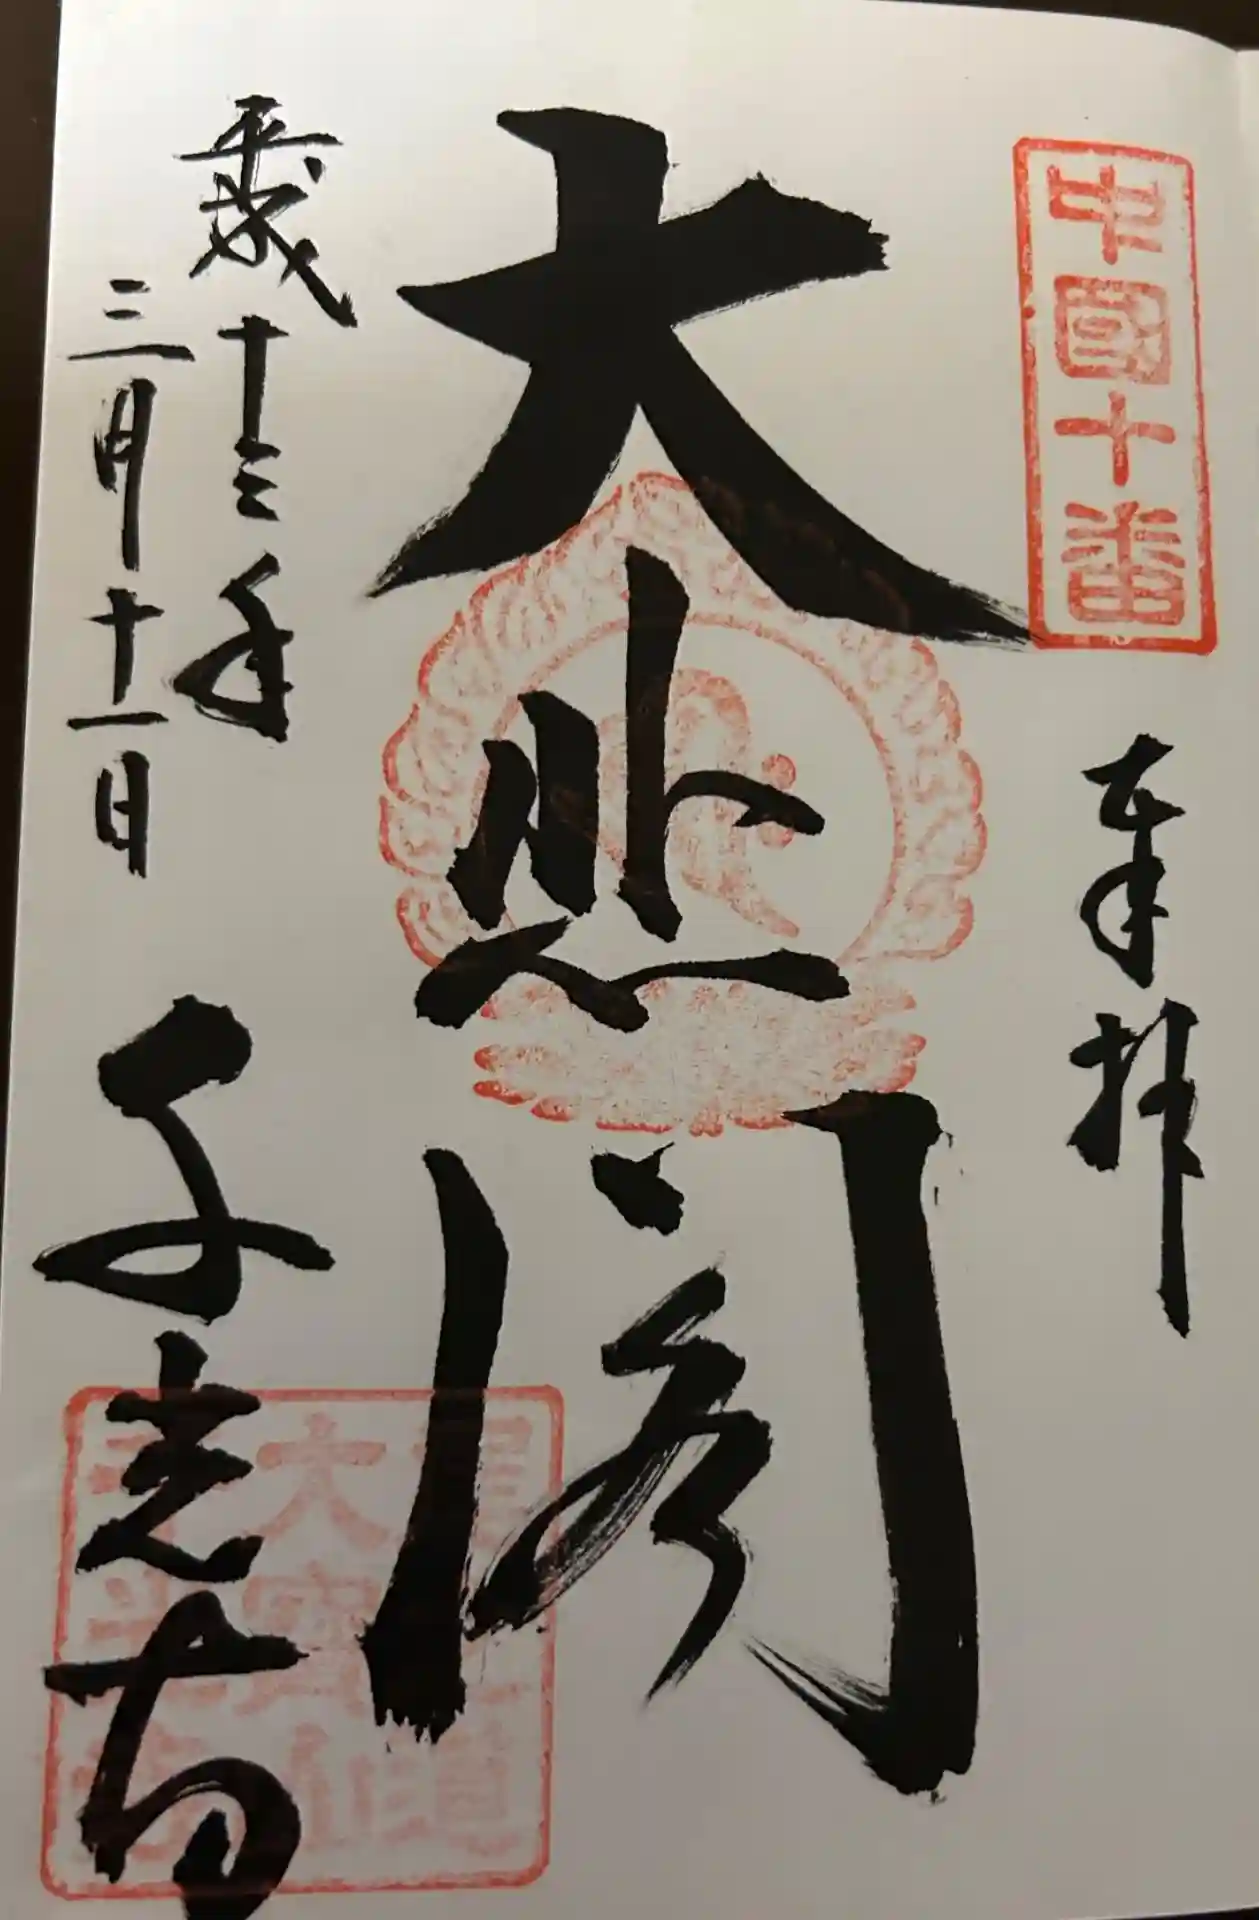 中國十番
奉拝
大悲閣
平成十三年
三月十一日
千光寺
大寶山